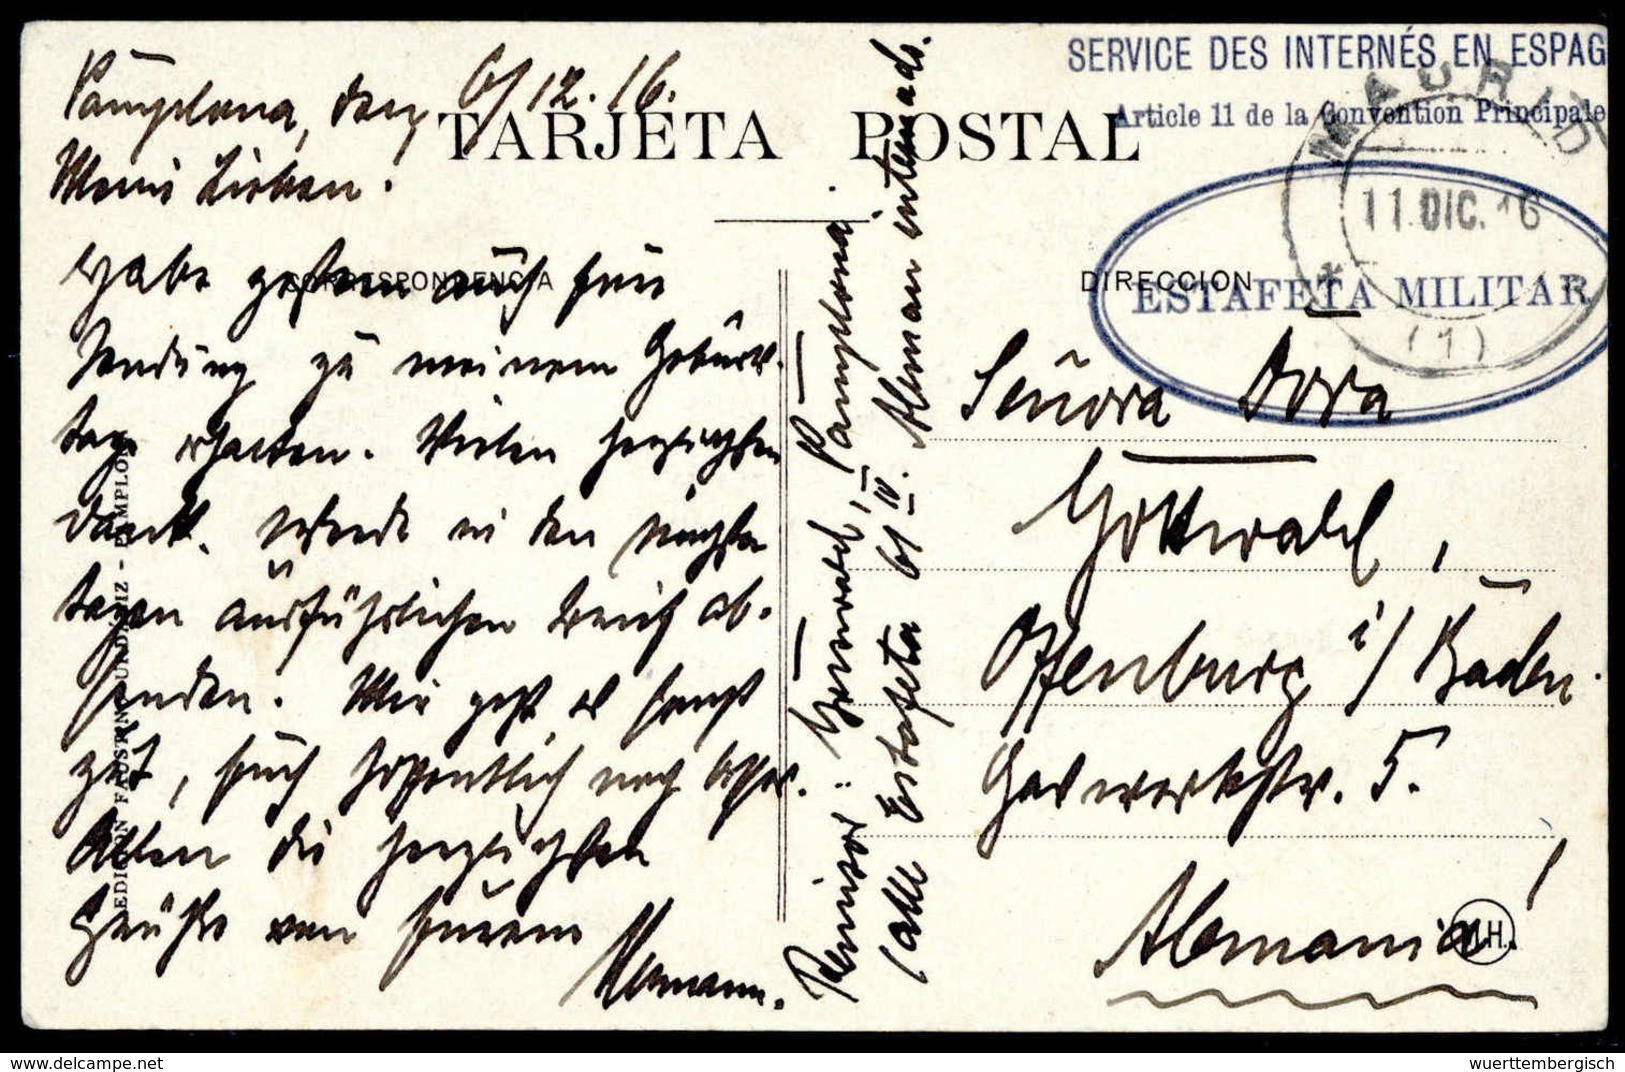 Pamplona, den 6/12.16.
Meine Lieben!
Habe gestern auch Eure
Sendung zu meinem Geburts-
tage erhalten. Vielen herzlichsten
Dank. Werde in den nächsten
Tagen ausführlichen Brief ab-
senden. Mir geht es sonst
gut, Euch hoffentlich noch besser.
Allen die herzlichsten
Grüße von Eurem
Hermann.
TARJETA POSTAL
CORRESPONDENCIA
DIRECCION
EDICION FAUSTINO
Remisor: Pamplona
Calle Estafeta 61 IV. Aleman internado.
SERVICE DES INTERNÉS EN ESPAG
Article 11 de la Convention Principale
MADRID
11.DIC.16
(1)
ESTAFETA MILITAR
Señora Dora
Gottwald,
Offenburg i/Baden.
Gaswerkstr. 5.
Alemania!
M.H.
delcampe.net
wuerttembergisch